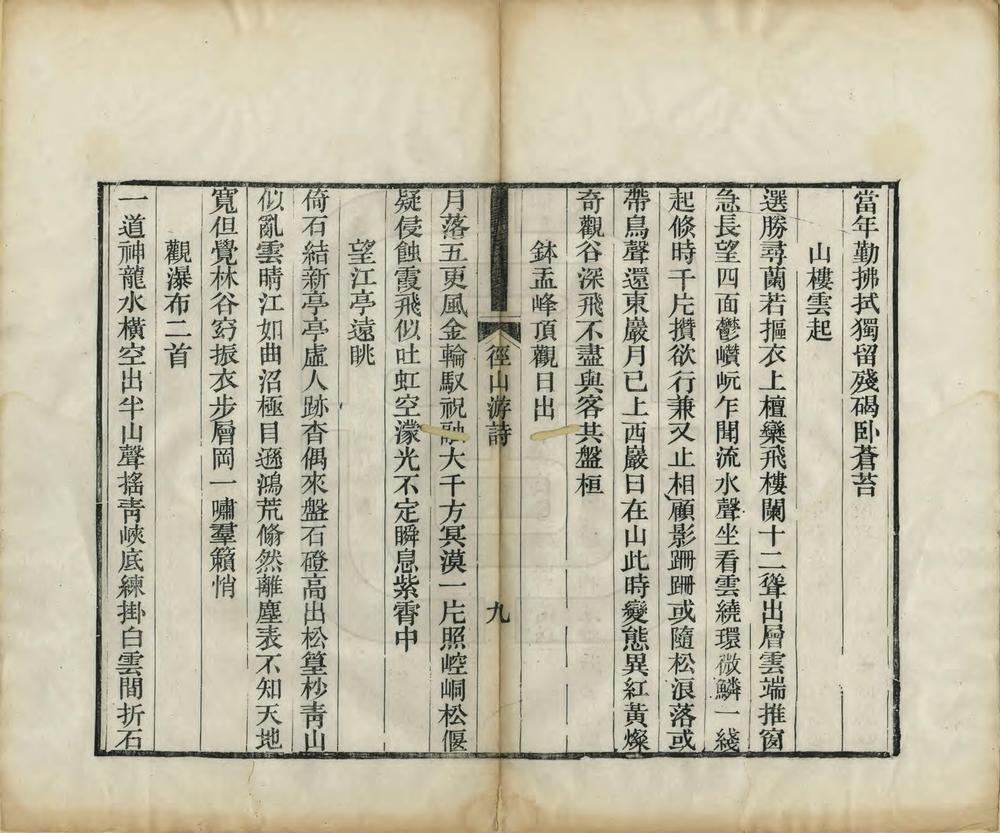 當年勤拂拭獨留殘碣卧蒼苔
山樓雲起
選勝尋蘭若摳衣上檀欒飛樓闌十二聳出層雲端推窗
急長望四面鬱巑岏乍聞流水聲坐看雲繞環微鱗一綫
起倏時千片攢欲行兼又止相顧影跚跚或隨松浪落或
帶鳥聲還東巖月已上西巖日在山此時變態異紅黃燦
奇觀谷深飛不盡與客共盤桓
鉢盂峰頂觀日出
徑山游詩
九
月落五更風金輪馭祝融大千方冥漠一片照崆峒松偃
疑侵蝕霞飛似吐虹空濛光不定瞬息紫霄中
望江亭遠眺
倚石結新亭亭虛人跡杳偶來盤石磴高出松篁杪青山
似亂雲晴江如曲沼極目遜鴻荒翛然離塵表不知天地
寬但覺林谷窈振衣步層岡一嘯羣籟悄
觀瀑布二首
一道神龍水橫空出半山聲搖青峽底練掛白雲間折石